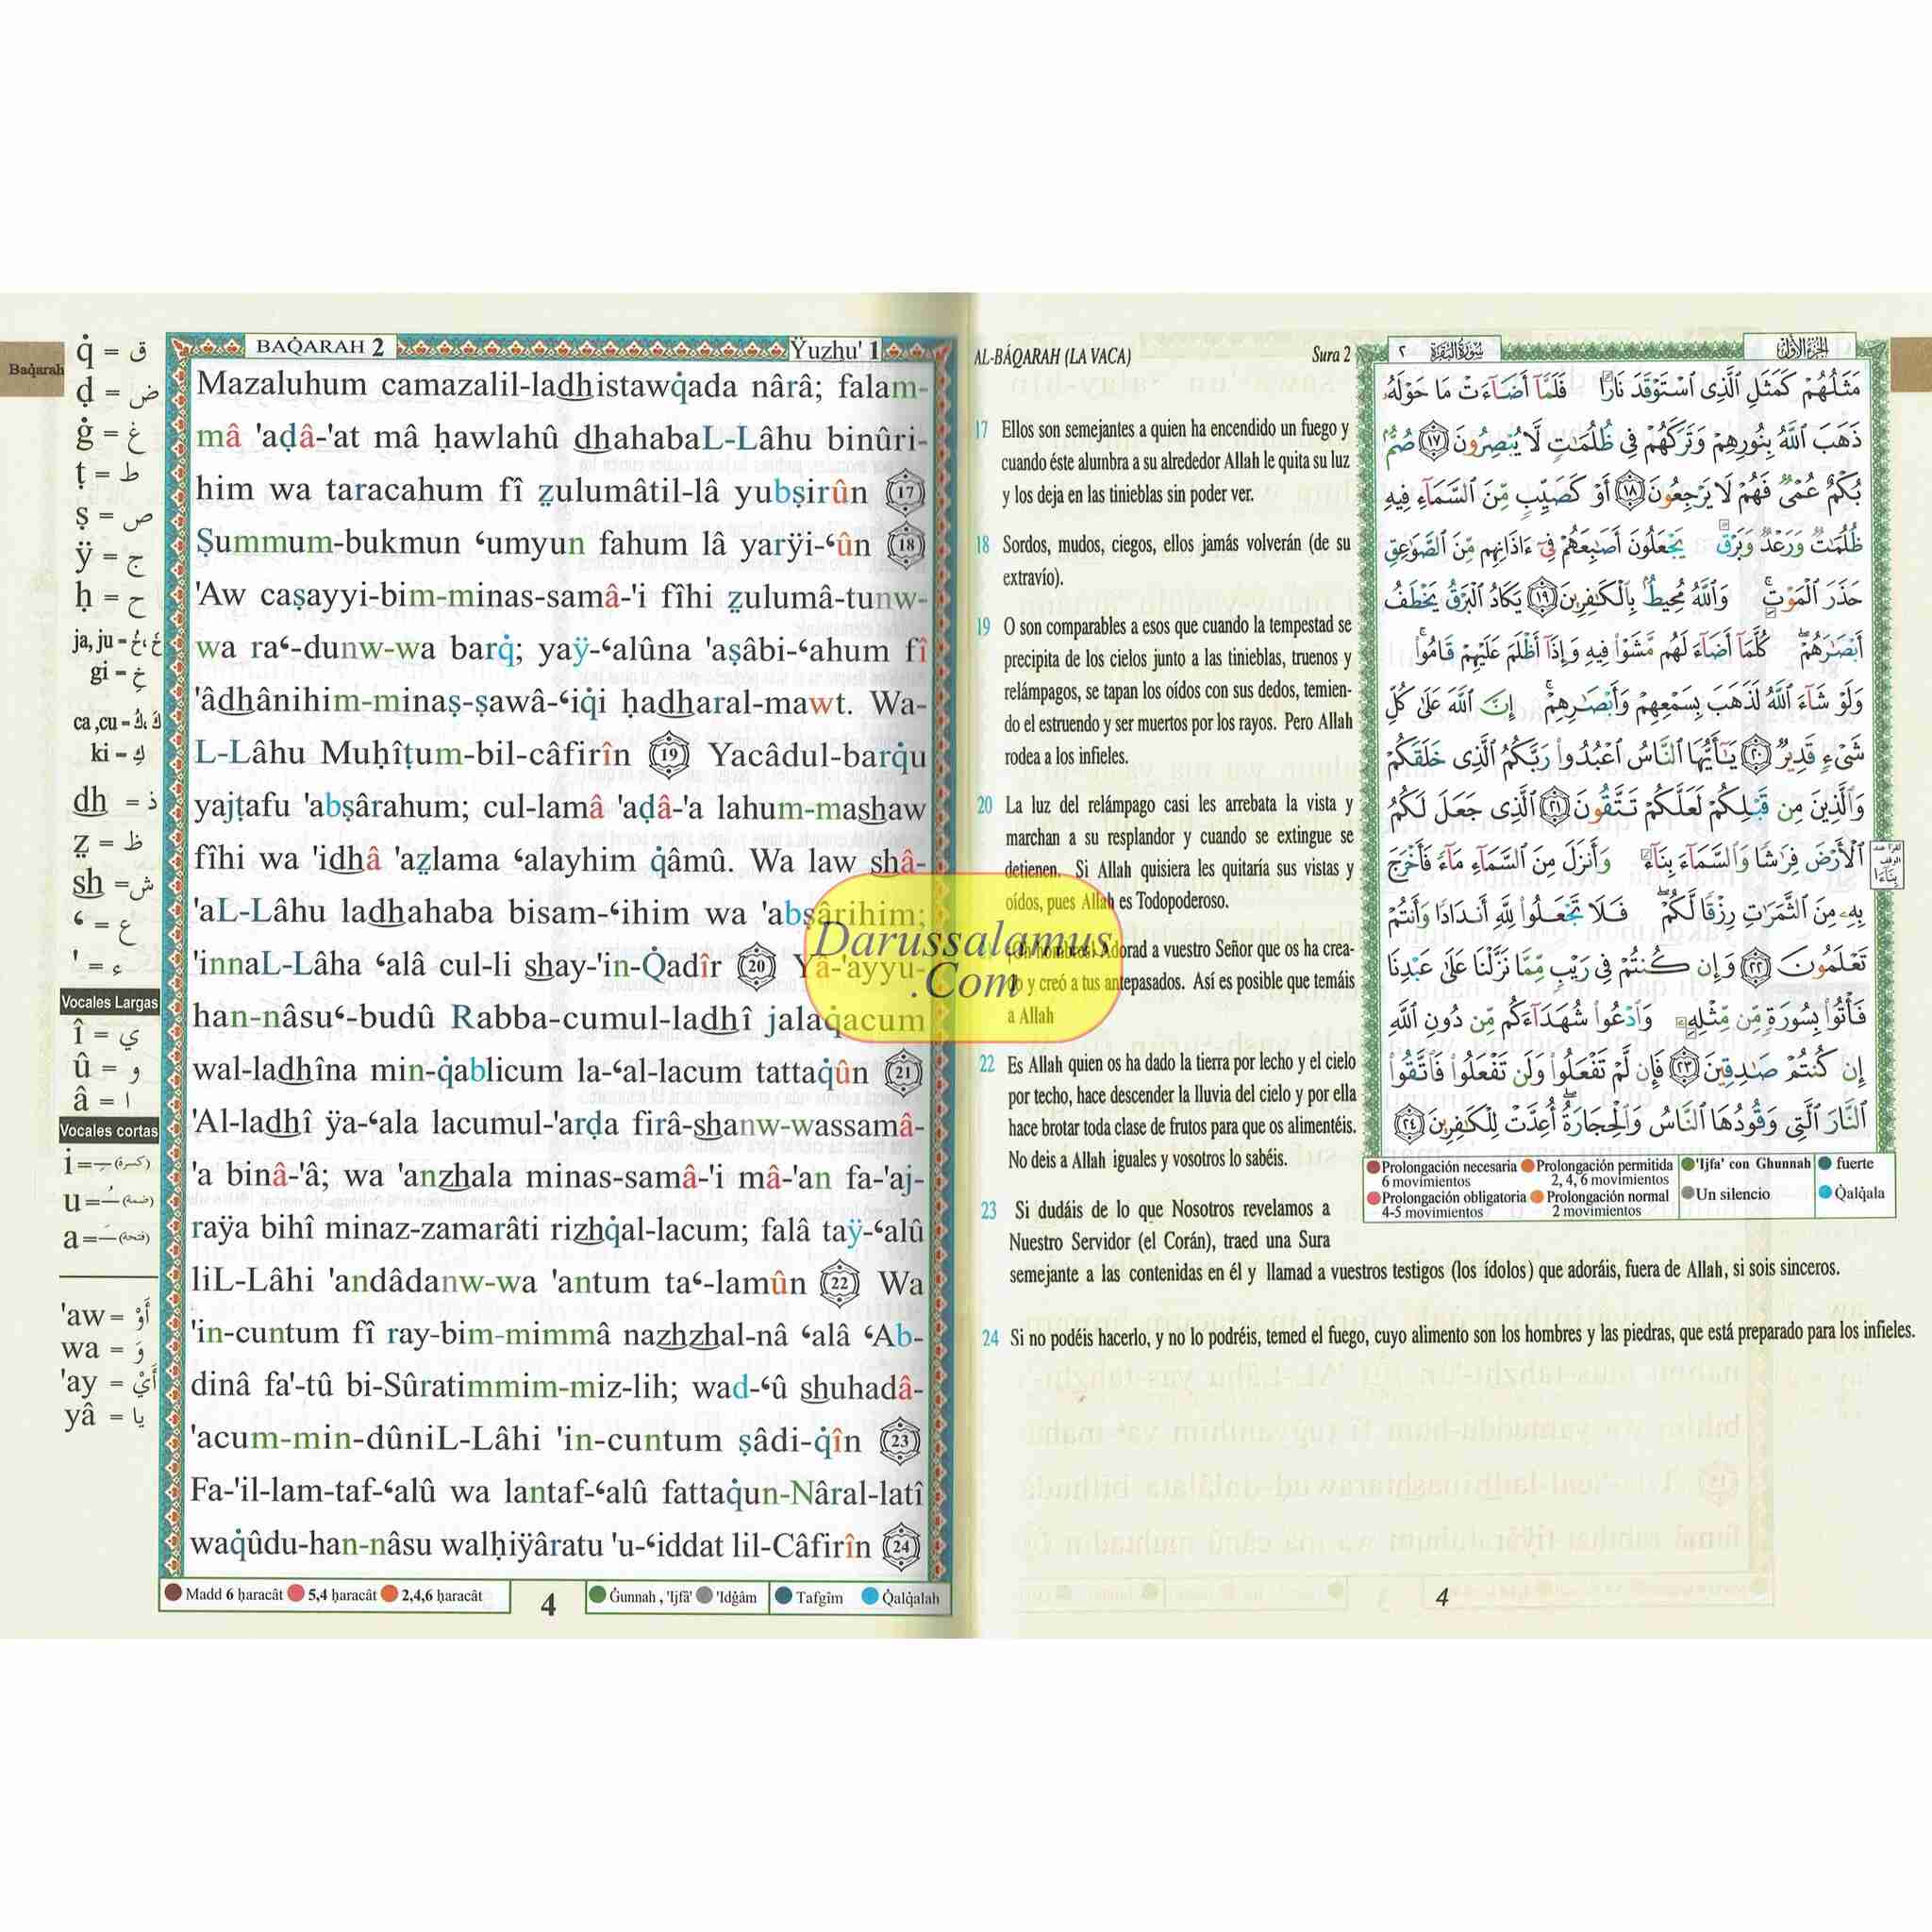 Baqarah
q̇ = ق
ḍ = ض
ġ = غ
ṭ = ط
ṣ = ص
ÿ = ج
ḥ = ح
ja, ju = خَ، خُ
gi = خِ
ca ,cu = كَ، كُ
ki = كِ
dh = ذ
ẓ = ظ
sh = ش
ʻ = ع
' = ء
Vocales Largas
î = ي
û = و
â = ا
Vocales cortas
i = ـِ (كسرة)
u = ـُ (ضمة)
a = ـَ (فتحة)
'aw = أَوْ
wa = وَ
'ay = أَيْ
yâ = يا
BAQ̇ARAH 2
Ÿuzhu' 1
Mazaluhum camazalil-ladhistawq̇ada nârâ; falam-
mâ 'aḍâ-'at mâ ḥawlahû dhahabaL-Lâhu binûri-
him wa taracahum fî ẓulumâtil-lâ yubṣirûn 17
Ṣummum-bukmun ʻumyun fahum lâ yarÿi-ʻûn 18
'Aw caṣayyi-bim-minas-samâ-'i fîhi ẓulumâ-tunw-
wa raʻ-dunw-wa barq̇; yaÿ-ʻalûna 'aṣâbi-ʻahum fî
'âdhânihim-minaṣ-ṣawâ-ʻiq̇i ḥadharal-mawt. Wa-
L-Lâhu Muḥîṭum-bil-câfirîn 19 Yacâdul-barq̇u
yajṭafu 'abṣârahum; cul-lamâ 'aḍâ-'a lahum-mashaw
fîhi wa 'idhâ 'aẓlama ʻalayhim q̇âmû. Wa law shâ-
'aL-Lâhu ladhahaba bisam-ʻihim wa 'abṣârihim;
'innaL-Lâha ʻalâ cul-li shay-'in-Q̇adîr 20 Yâ-'ayyu-
han-nâsuʻ-budû Rabba-cumul-ladhî jalaq̇acum
wal-ladhîna min-q̇ablicum la-ʻal-lacum tattaq̇ûn 21
'Al-ladhî ÿa-ʻala lacumul-'arḍa firâ-shanw-wassamâ-
'a binâ-'â; wa 'anzhala minas-samâ-'i mâ-'an fa-'aj-
raÿa bihî minaz-zamarâti rizhq̇al-lacum; falâ taÿ-ʻalû
liL-Lâhi 'andâdanw-wa 'antum taʻ-lamûn 22 Wa
'in-cuntum fî ray-bim-mimmâ nazhzhal-nâ ʻalâ ʻAb-
dinâ fa'-tû bi-Sûratimmim-miz-lih; wad-ʻû shuhadâ-
'acum-min-dûniL-Lâhi 'in-cuntum ṣâdi-q̇în 23
Fa-'il-lam-taf-ʻalû wa lantaf-ʻalû fattaq̇un-Nâral-latî
waq̇ûdu-han-nâsu walḥiÿâratu 'u-ʻiddat lil-Câfirîn 24
Madd 6 ḥaracât 5,4 ḥaracât 2,4,6 ḥaracât
4
Ġunnah , 'Ijfâ' 'Idġâm
Tafgîm Q̇alq̇alah
AL-BÁQARAH (LA VACA)
Sura 2
17 Ellos son semejantes a quien ha encendido un fuego y
cuando éste alumbra a su alrededor Allah le quita su luz
y los deja en las tinieblas sin poder ver.
18 Sordos, mudos, ciegos, ellos jamás volverán (de su
extravío).
19 O son comparables a esos que cuando la tempestad se
precipita de los cielos junto a las tinieblas, truenos y
relámpagos, se tapan los oídos con sus dedos, temien-
do el estruendo y ser muertos por los rayos. Pero Allah
rodea a los infieles.
20 La luz del relámpago casi les arrebata la vista y
marchan a su resplandor y cuando se extingue se
detienen. Si Allah quisiera les quitaría sus vistas y
oídos, pues Allah es Todopoderoso.
Adorad a vuestro Señor que os ha crea-
y creó a tus antepasados. Así es posible que temáis
a Allah
22 Es Allah quien os ha dado la tierra por lecho y el cielo
por techo, hace descender la lluvia del cielo y por ella
hace brotar toda clase de frutos para que os alimentéis.
No deis a Allah iguales y vosotros lo sabéis.
23 Si dudáis de lo que Nosotros revelamos a
Nuestro Servidor (el Corán), traed una Sura
semejante a las contenidas en él y llamad a vuestros testigos (los ídolos) que adoráis, fuera de Allah, si sois sinceros.
24 Si no podéis hacerlo, y no lo podréis, temed el fuego, cuyo alimento son los hombres y las piedras, que está preparado para los infieles.
Darussalamus
.Com
الجزء الأول
سورة البقرة ٢
مَثَلُهُمْ كَمَثَلِ ٱلَّذِى ٱسْتَوْقَدَ نَارًا فَلَمَّآ أَضَآءَتْ مَا حَوْلَهُۥ
ذَهَبَ ٱللَّهُ بِنُورِهِمْ وَتَرَكَهُمْ فِى ظُلُمَٰتٍ لَّا يُبْصِرُونَ ١٧ صُمٌّۢ
بُكْمٌ عُمْىٌ فَهُمْ لَا يَرْجِعُونَ ١٨ أَوْ كَصَيِّبٍ مِّنَ ٱلسَّمَآءِ فِيهِ
ظُلُمَٰتٌ وَرَعْدٌ وَبَرْقٌ يَجْعَلُونَ أَصَٰبِعَهُمْ فِىٓ ءَاذَانِهِم مِّنَ ٱلصَّوَٰعِقِ
حَذَرَ ٱلْمَوْتِ ۚ وَٱللَّهُ مُحِيطٌۢ بِٱلْكَٰفِرِينَ ١٩ يَكَادُ ٱلْبَرْقُ يَخْطَفُ
أَبْصَٰرَهُمْ ۖ كُلَّمَآ أَضَآءَ لَهُم مَّشَوْا۟ فِيهِ وَإِذَآ أَظْلَمَ عَلَيْهِمْ قَامُوا۟ ۚ
وَلَوْ شَآءَ ٱللَّهُ لَذَهَبَ بِسَمْعِهِمْ وَأَبْصَٰرِهِمْ ۚ إِنَّ ٱللَّهَ عَلَىٰ كُلِّ
شَىْءٍ قَدِيرٌ ٢٠ يَٰٓأَيُّهَا ٱلنَّاسُ ٱعْبُدُوا۟ رَبَّكُمُ ٱلَّذِى خَلَقَكُمْ
وَٱلَّذِينَ مِن قَبْلِكُمْ لَعَلَّكُمْ تَتَّقُونَ ٢١ ٱلَّذِى جَعَلَ لَكُمُ
ٱلْأَرْضَ فِرَٰشًا وَٱلسَّمَآءَ بِنَآءً وَأَنزَلَ مِنَ ٱلسَّمَآءِ مَآءً فَأَخْرَجَ
بِهِۦ مِنَ ٱلثَّمَرَٰتِ رِزْقًا لَّكُمْ ۖ فَلَا تَجْعَلُوا۟ لِلَّهِ أَندَادًا وَأَنتُمْ
تَعْلَمُونَ ٢٢ وَإِن كُنتُمْ فِى رَيْبٍ مِّمَّا نَزَّلْنَا عَلَىٰ عَبْدِنَا
فَأْتُوا۟ بِسُورَةٍ مِّن مِّثْلِهِۦ وَٱدْعُوا۟ شُهَدَآءَكُم مِّن دُونِ ٱللَّهِ
إِن كُنتُمْ صَٰدِقِينَ ٢٣ فَإِن لَّمْ تَفْعَلُوا۟ وَلَن تَفْعَلُوا۟ فَٱتَّقُوا۟
ٱلنَّارَ ٱلَّتِى وَقُودُهَا ٱلنَّاسُ وَٱلْحِجَارَةُ ۖ أُعِدَّتْ لِلْكَٰفِرِينَ ٢٤
Prolongación necesaria Prolongación permitida 'Ijfa' con Ghunnah fuerte
6 movimientos 2, 4, 6 movimientos
Prolongación obligatoria Prolongación normal Un silencio Q̇alq̇ala
4-5 movimientos 2 movimientos
4